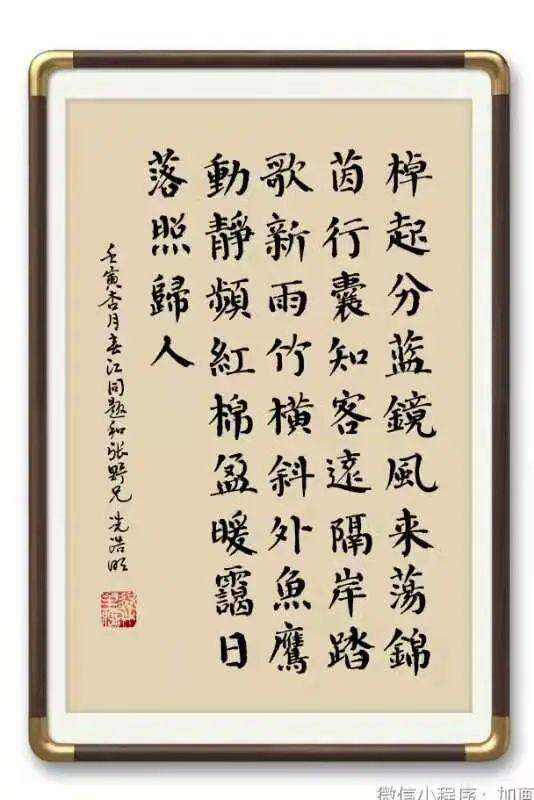 棹起分蓝鏡風来荡錦
茵行囊知客遠隔岸踏
歌新雨竹横斜外魚鷹
動靜頻紅棉盈暖靄日
落照歸人
壬寅杏月春江同題和張野兄 冼浩明
微信小程序：加画